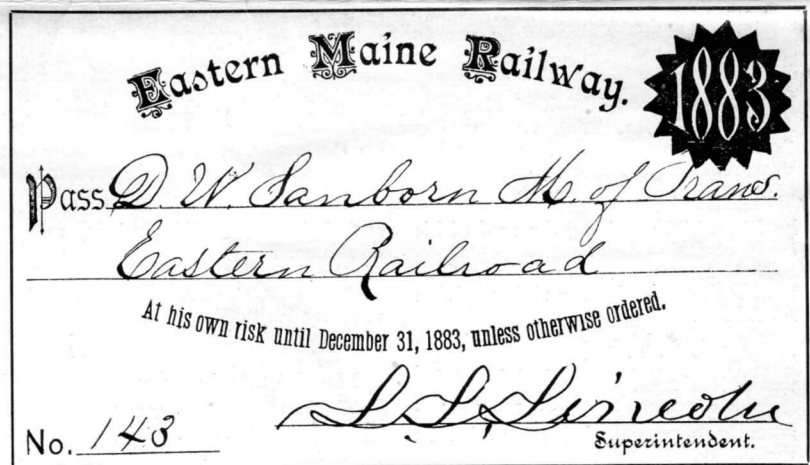 Eastern Maine Railway.
1883
Pass D. W. Sanborn M. of Trans.
Eastern Railroad
At his own risk until December 31, 1883, unless otherwise ordered.
L. L. Lincoln
No. 143
Superintendent.